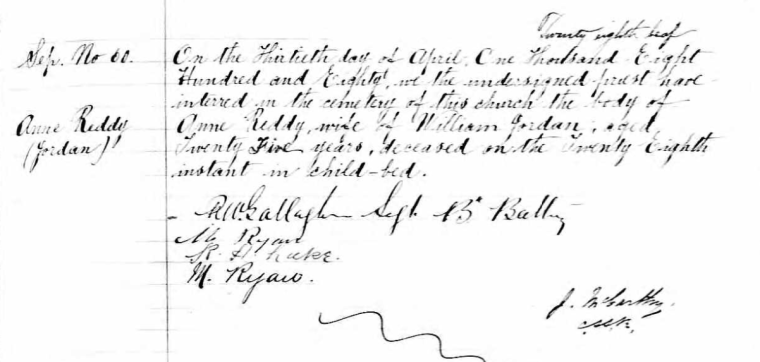 Twenty eighth leaf
Sep. No 60.
On the Thirtieth day of April, One Thousand Eight
Hundred and Eighty, we the undersigned priest have
interred in the cemetery of this church the body of
Anne Reddy
(Jordan)
Anne Reddy, wife of William Jordan, aged
Twenty Five years, deceased on the Twenty Eighth
instant in child-bed.
Sgt. B. Batty
M. Ryan
M. Ryan.
J. McCarthy.